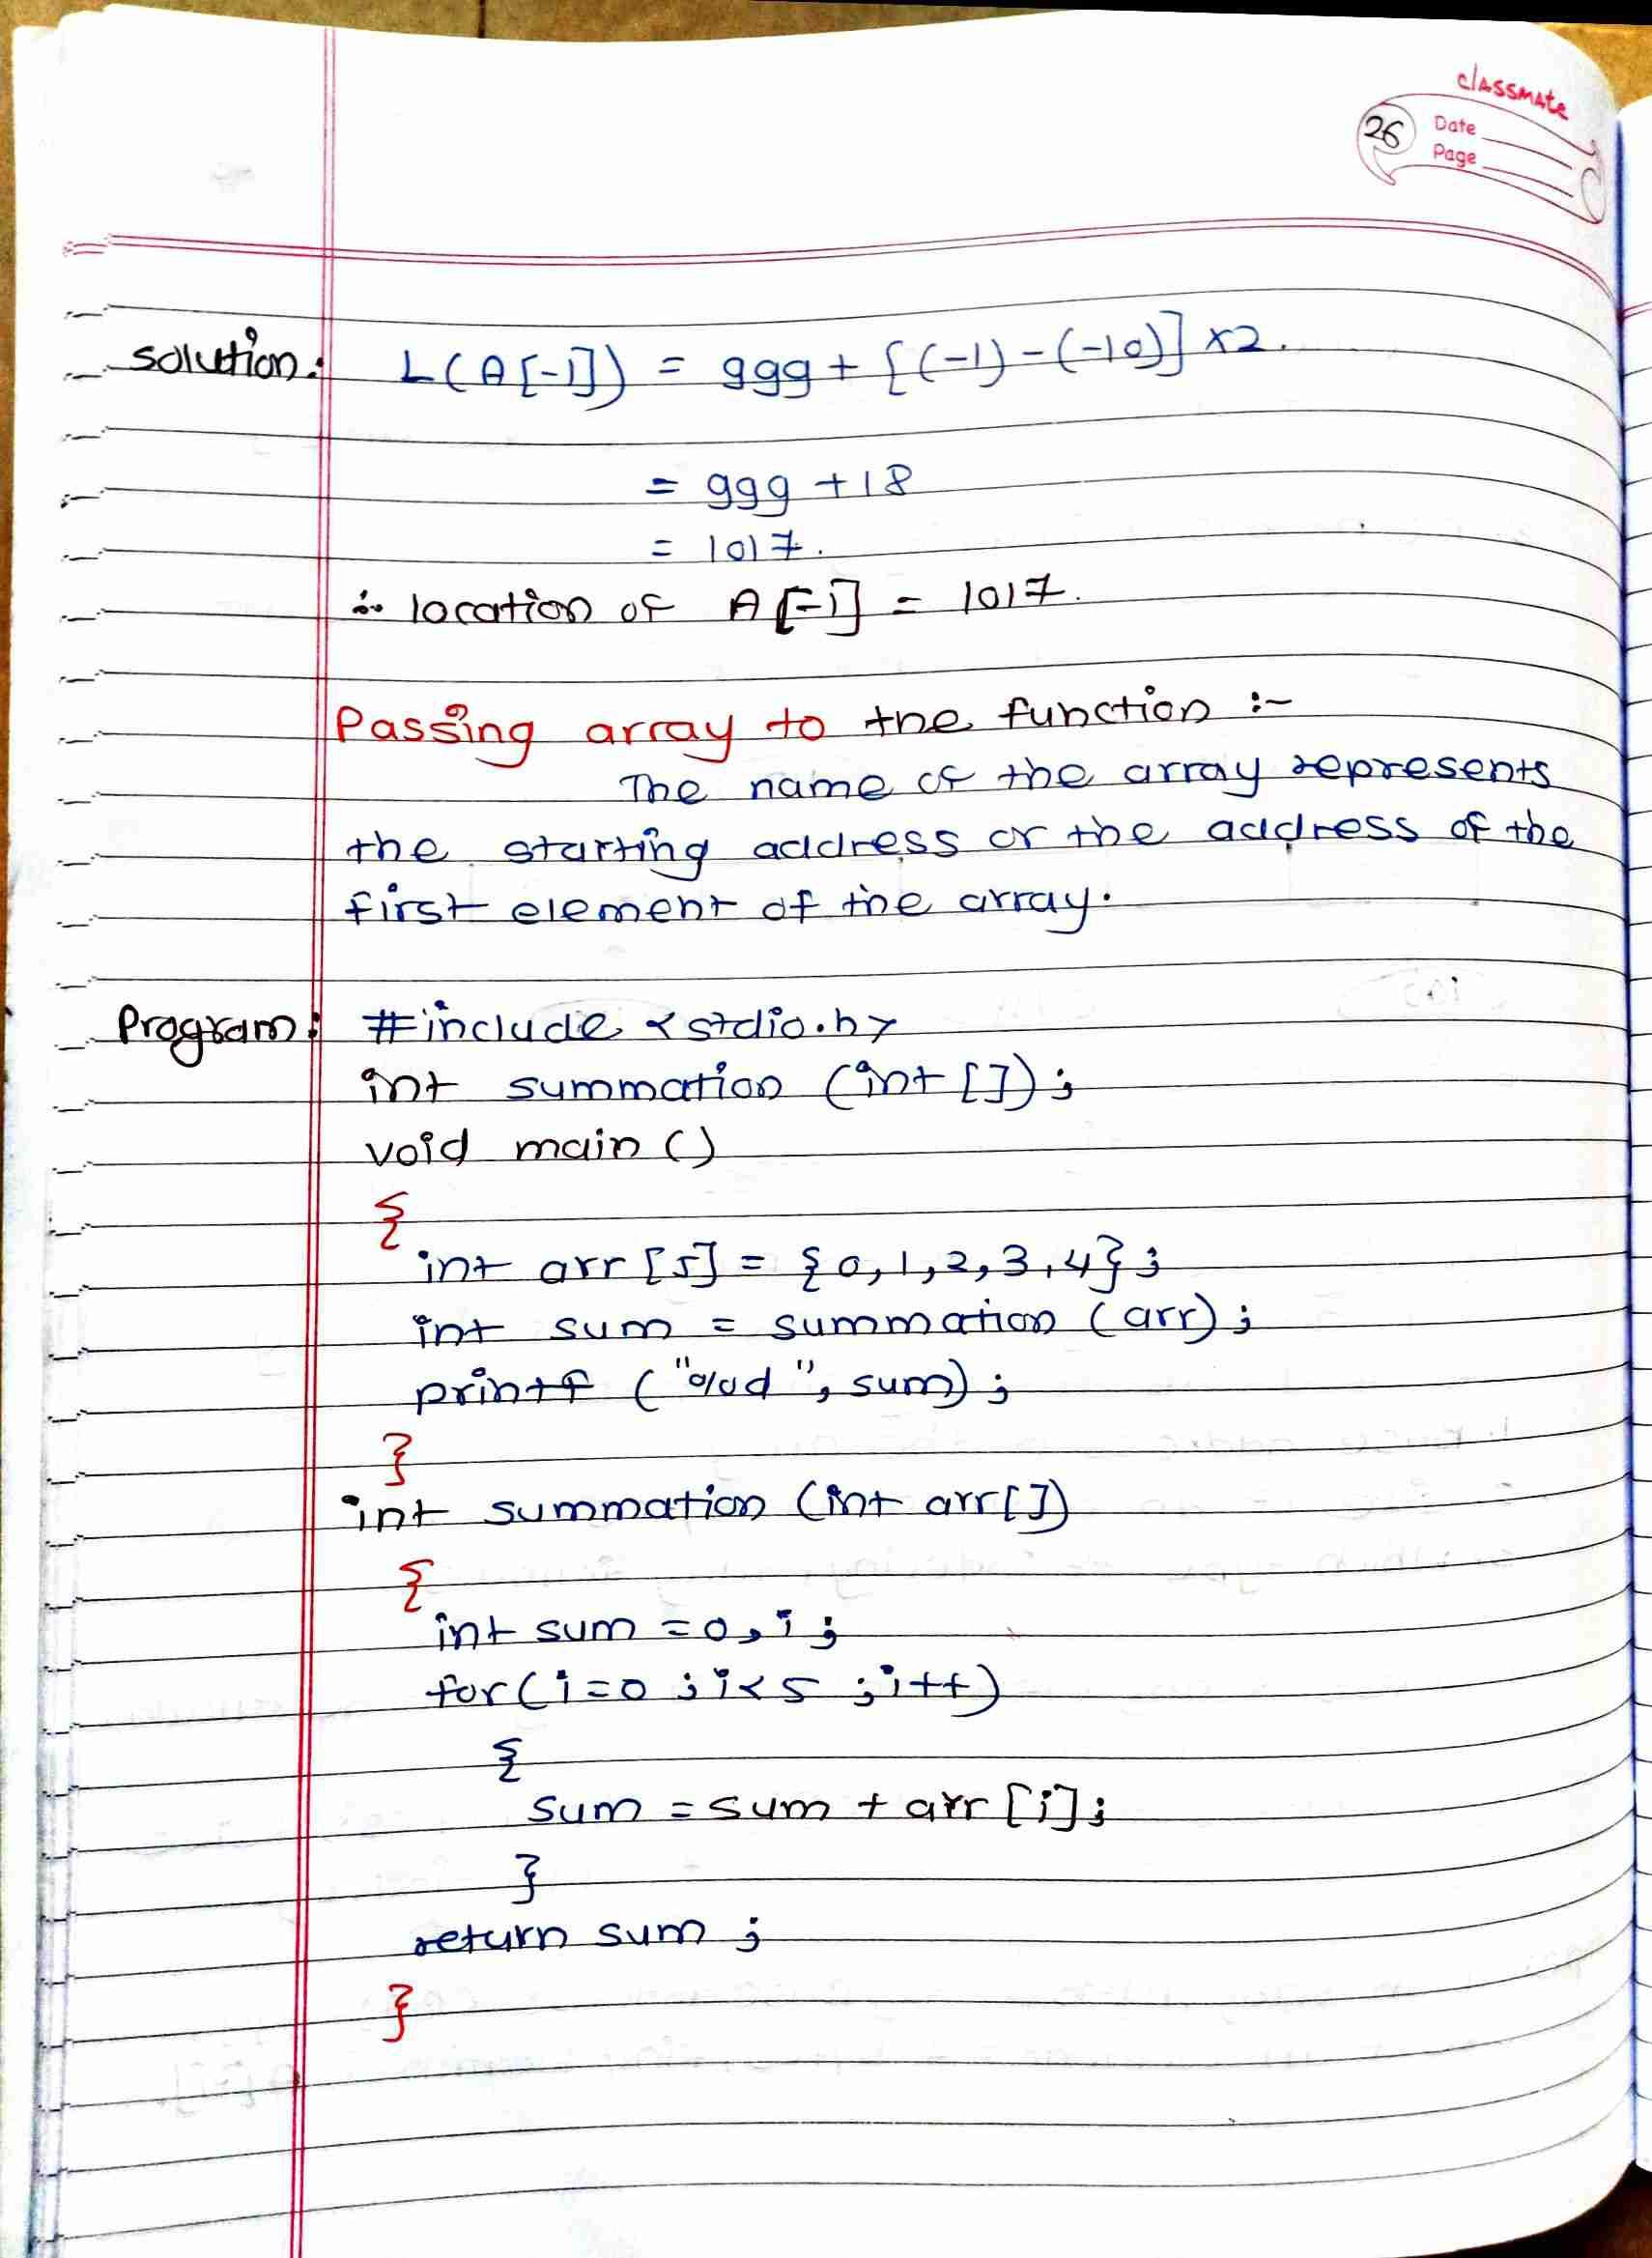 classmate
26
Date
Page
Solution: L(A[-1]) = 999 + [(-1) - (-10)] x2.
= 999 + 18
= 1017.
∴ location of A[-1] = 1017.
Passing array to the function :-
The name of the array represents
the starting address or the address of the
first element of the array.
Program: #include <stdio.h>
int summation (int []);
void main ()
{
int arr [5] = {0,1,2,3,4};
int sum = summation (arr);
printf ("%d", sum);
}
int summation (int arr[])
{
int sum =0, i;
for(i=0; i<5; i++)
{
sum = sum + arr [i];
}
return sum;
}